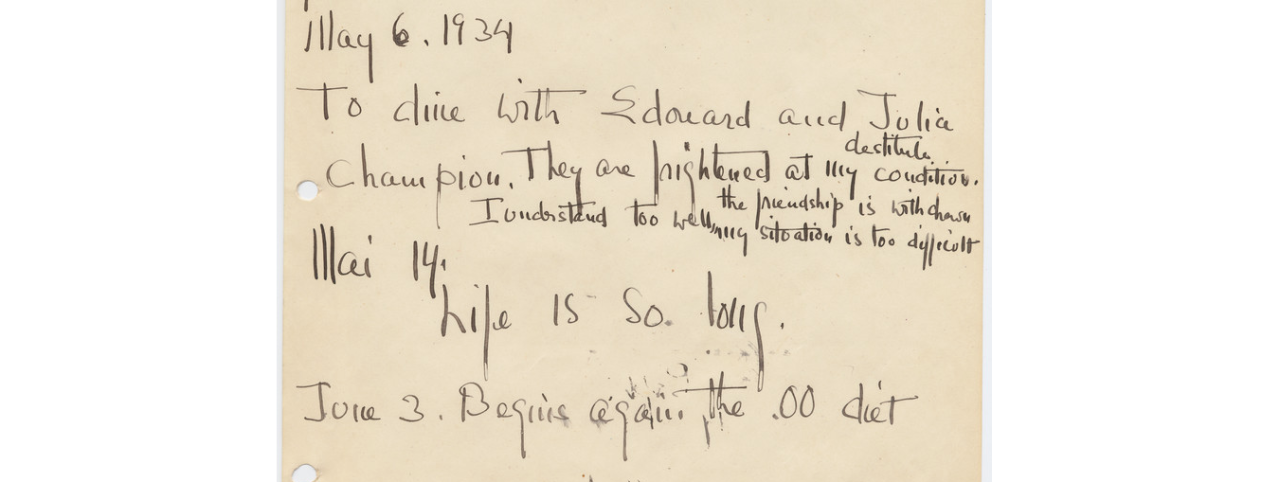 May 6. 1934
To dine with Edouard and Julia
destitute
Champion. They are frightened at my condition.
the friendship is withdrawn
I understand too well, my situation is too difficult
Mai 14.
Life is so. long.
June 3. Begins again the .00 diet